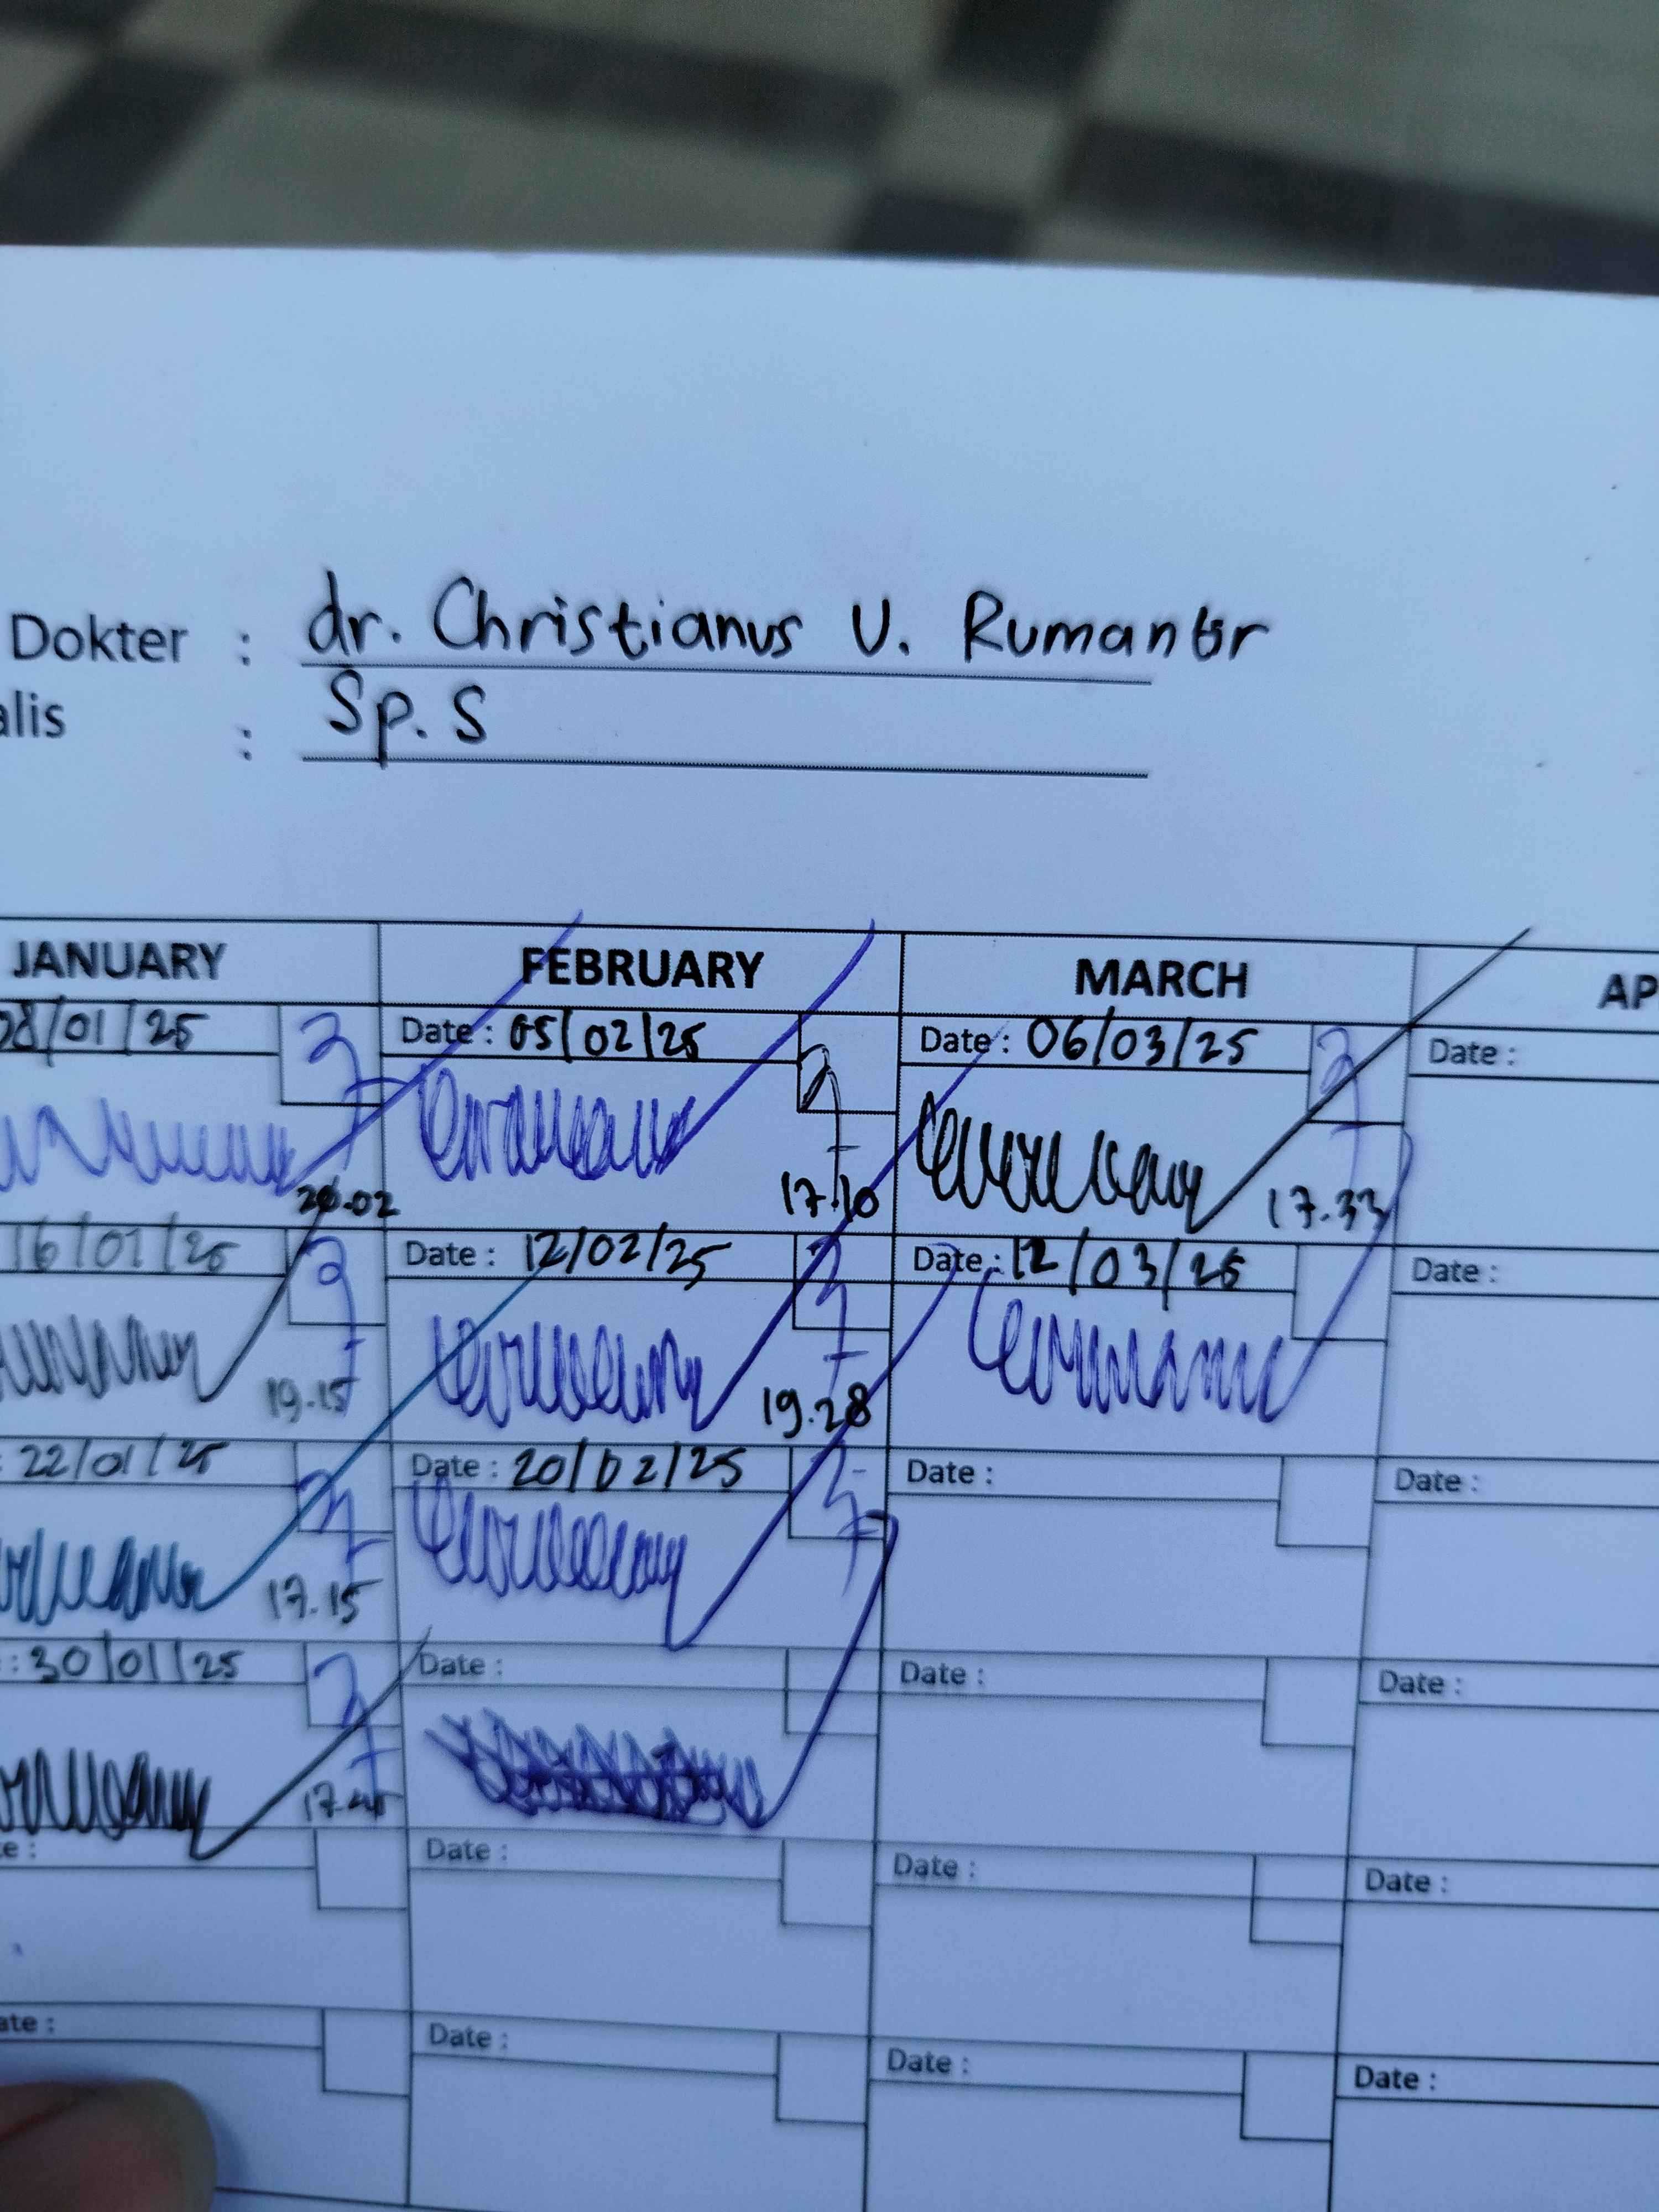 Dokter : dr. Christianus V. Rumantir
alis : Sp. S
JANUARY FEBRUARY MARCH AP
08/01/25 Date : 05/02/25 Date : 06/03/25 Date :
17.10 17.33
16/01/25 Date : 12/02/25 Date : 12/03/25 Date :
19.15 19.28
: 22/01/25 Date : 20/02/25 Date : Date :
17.15
: 30/01/25 Date : Date : Date :
e : Date : Date : Date :
ate : Date : Date : Date :